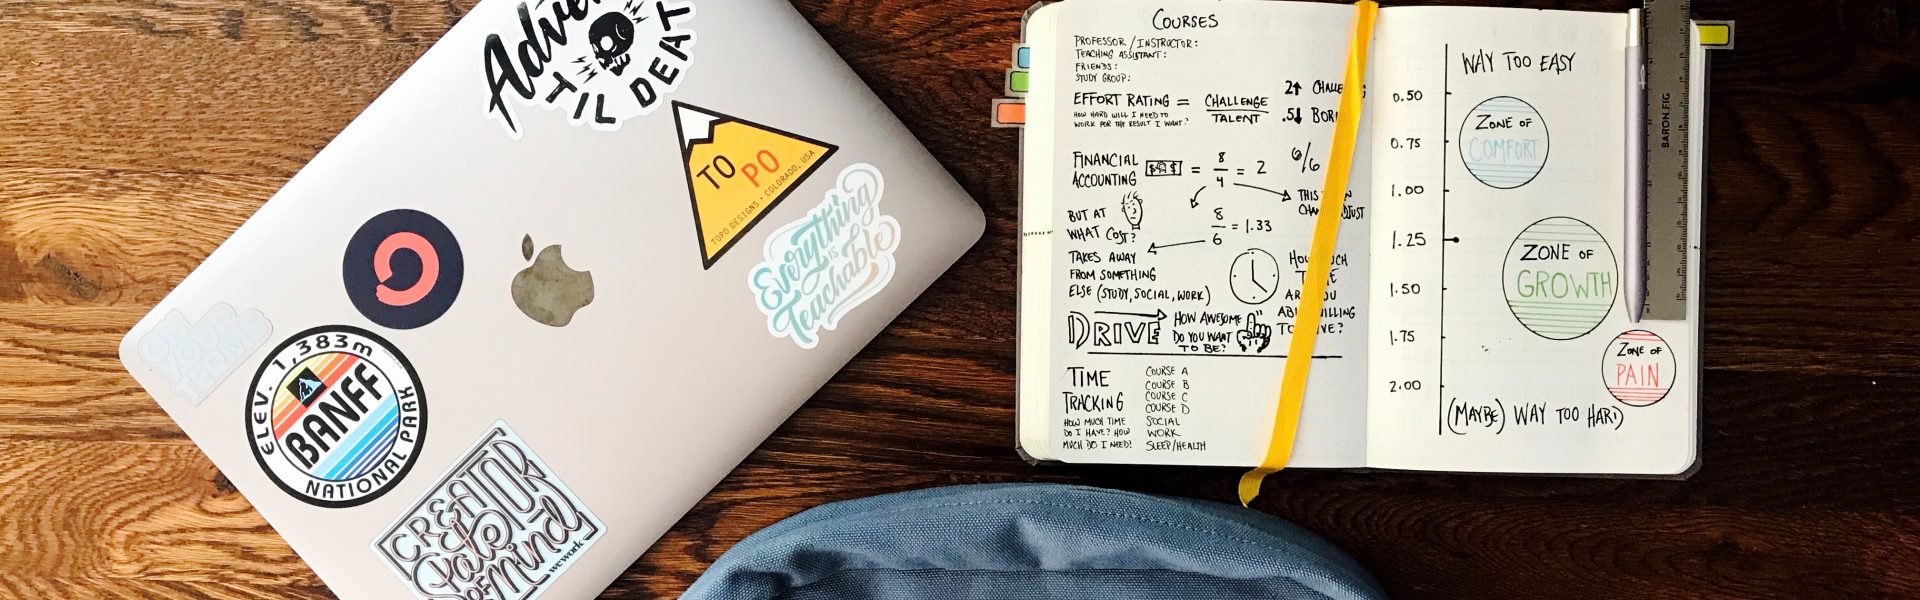 Adve
TIL DEAT
TO
PO
TOPO DESIGNS • COLORADO, USA
Everything
IS
Teachable
ON
YOUR
TERMS
ELEV. 1,383m
BANFF
NATIONAL PARK
CREATOR
State
OF Mind
wework
COURSES
PROFESSOR / INSTRUCTOR:
TEACHING ASSISTANT:
FRIENDS:
STUDY GROUP:
EFFORT RATING = CHALLENGE
TALENT
HOW HARD WILL I NEED TO
WORK FOR THE RESULT I WANT?
2↑ CHALLE
.5↓ BORI
FINANCIAL
ACCOUNTING
$ $ = 8
4 = 2
6/6
THIS
CHA JUST
BUT AT
WHAT COST?
8
6 = 1.33
TAKES AWAY
FROM SOMETHING
ELSE (STUDY, SOCIAL, WORK)
HOW MUCH
T E
ARE YOU
ABL WILLING
TO IVE?
DRIVE
HOW AWESOME
DO YOU WANT
TO BE?
TIME
TRACKING
HOW MUCH TIME
DO I HAVE? HOW
MUCH DO I NEED?
COURSE A
COURSE B
COURSE C
COURSE D
SOCIAL
WORK
SLEEP/HEALTH
WAY TOO EASY
0.50
0.75
1.00
1.25
1.50
1.75
2.00
ZONE OF
COMFORT
ZONE OF
GROWTH
ZONE OF
PAIN
(MAYBE) WAY TOO HARD
BARON FIG